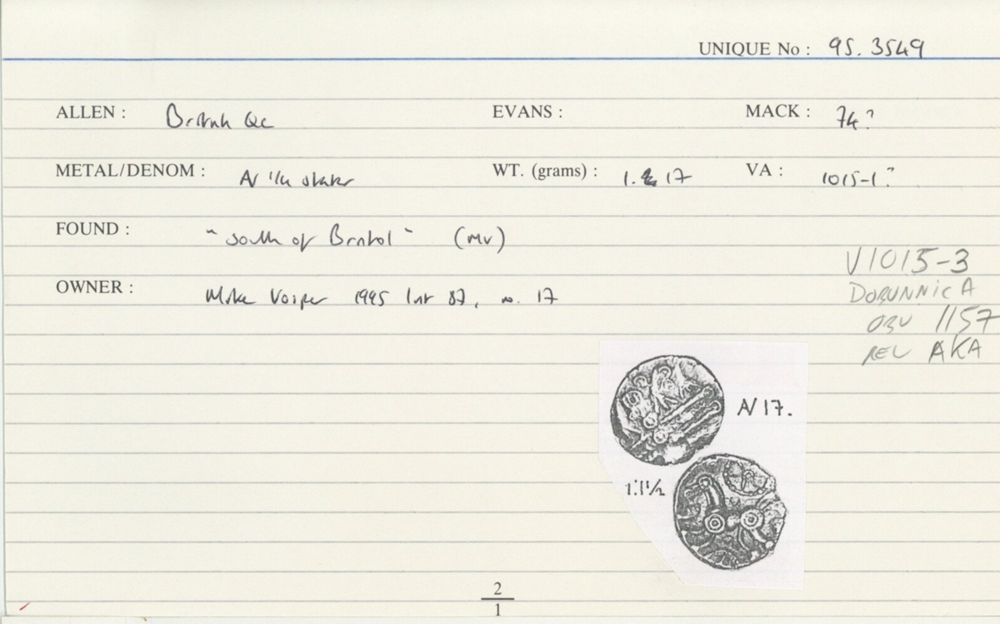 UNIQUE No : 95.3549
ALLEN : British Qc EVANS : MACK : 74?
METAL/DENOM : AV 1/4 stater WT. (grams) : 1.17 VA : 1015-1?
FOUND : "South of Bristol" (MV)
OWNER : Mike Vosper 1995 list 87, no. 17
V1015-3
DOBUNNIC A
OBV 1157
REV AKA
AV 17.
1:1½
2
1